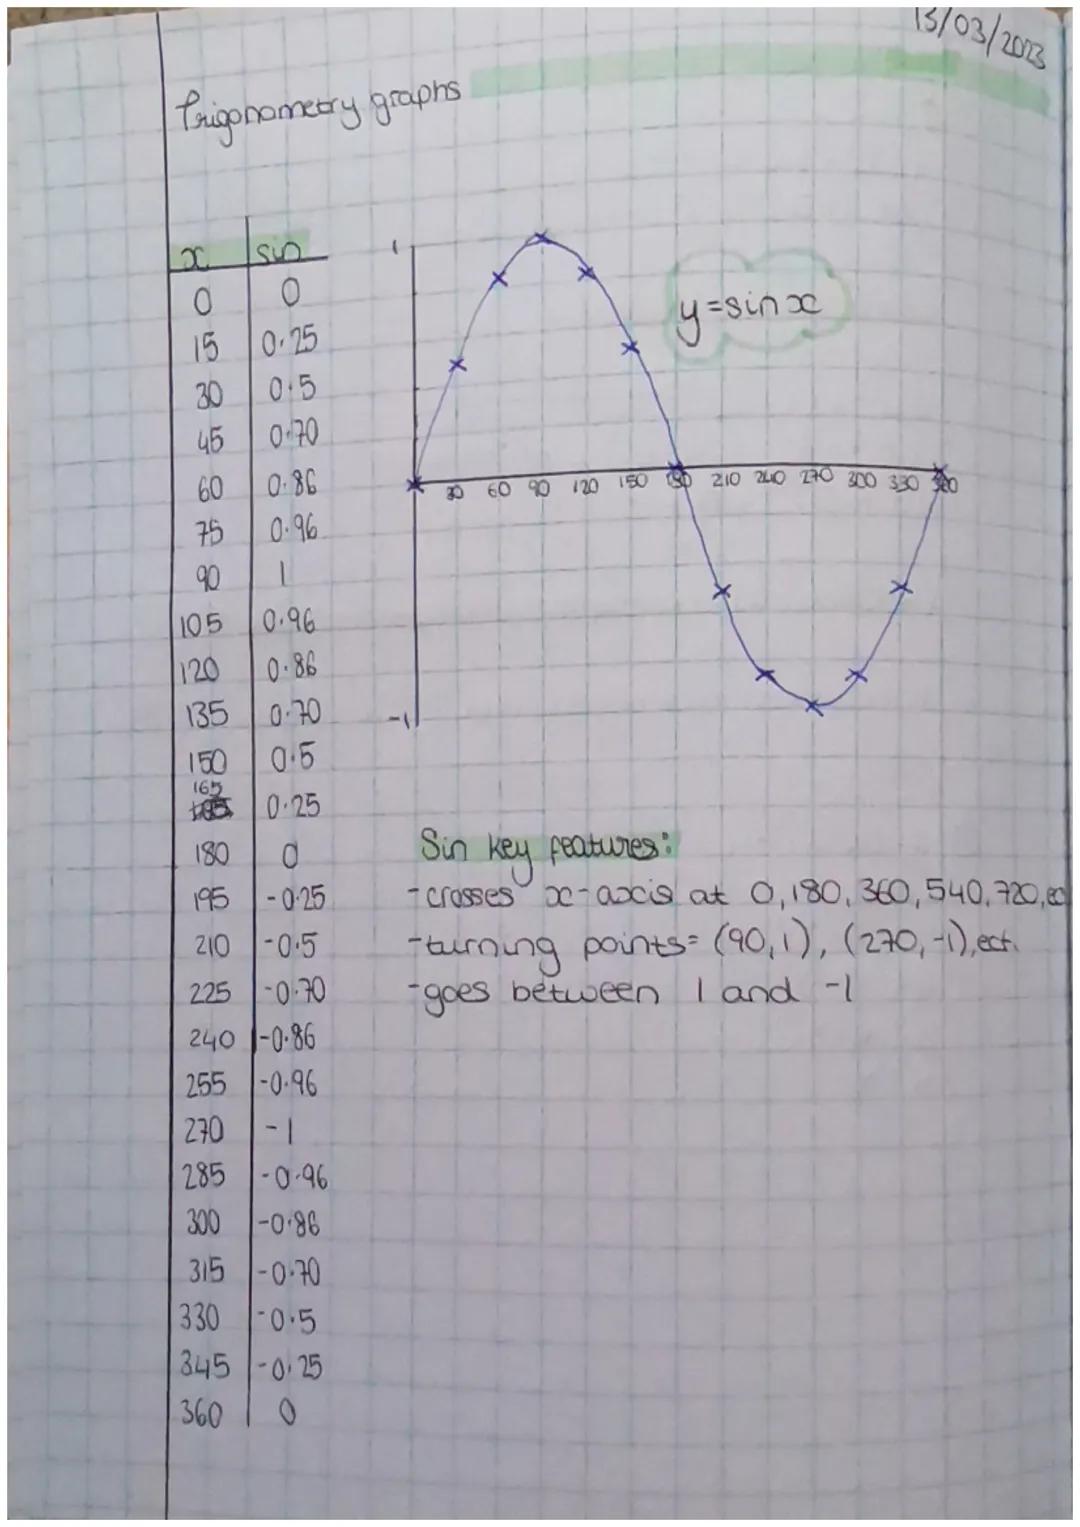 13/03/2023
Trigonometry graphs
x sin
0 0
15 0.25
30 0.5
45 0.70
60 0.86
75 0.96
90 1
105 0.96
120 0.86
135 0.70
150 0.5
165 0.25
180 0
195 -0.25
210 -0.5
225 -0.70
240 -0.86
255 -0.96
270 -1
285 -0.96
300 -0.86
315 -0.70
330 -0.5
345 -0.25
360 0
1
y=sinx
30 60 90 120 150 180 210 240 270 300 330 360
-1
Sin key features:
-crosses x-axis at 0, 180, 360, 540, 720, ec
-turning points= (90,1), (270,-1), ect.
-goes between 1 and -1